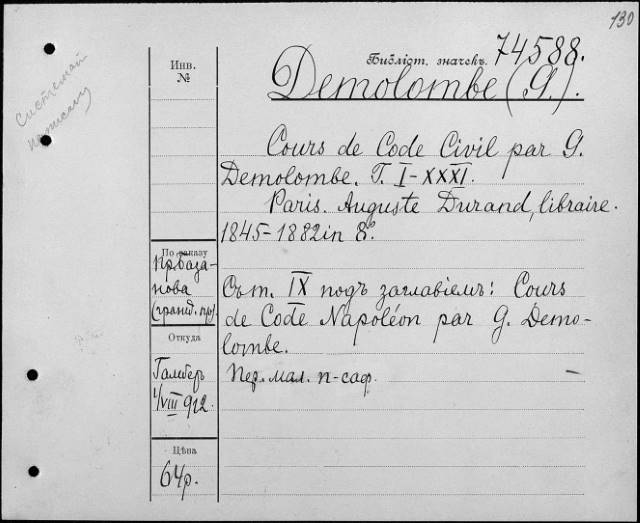 130
Систематий
Инв.
№
Библіот. значекъ. 74588.
Demolombe (G.).
Cours de Code Civil par G.
Demolombe. T. I-XXXI.
Paris. Auguste Durand, libraire.
1845-1882 in 8°.
По заказу
(гранд. пр.)
Съ т. IX подъ заглавіемъ: Cours
de Code Napoléon par G. Demo-
lombe.
Пер. мал. п-саф. –
Откуда
Гамбер
1/VIII 912.
Цѣна
64р.